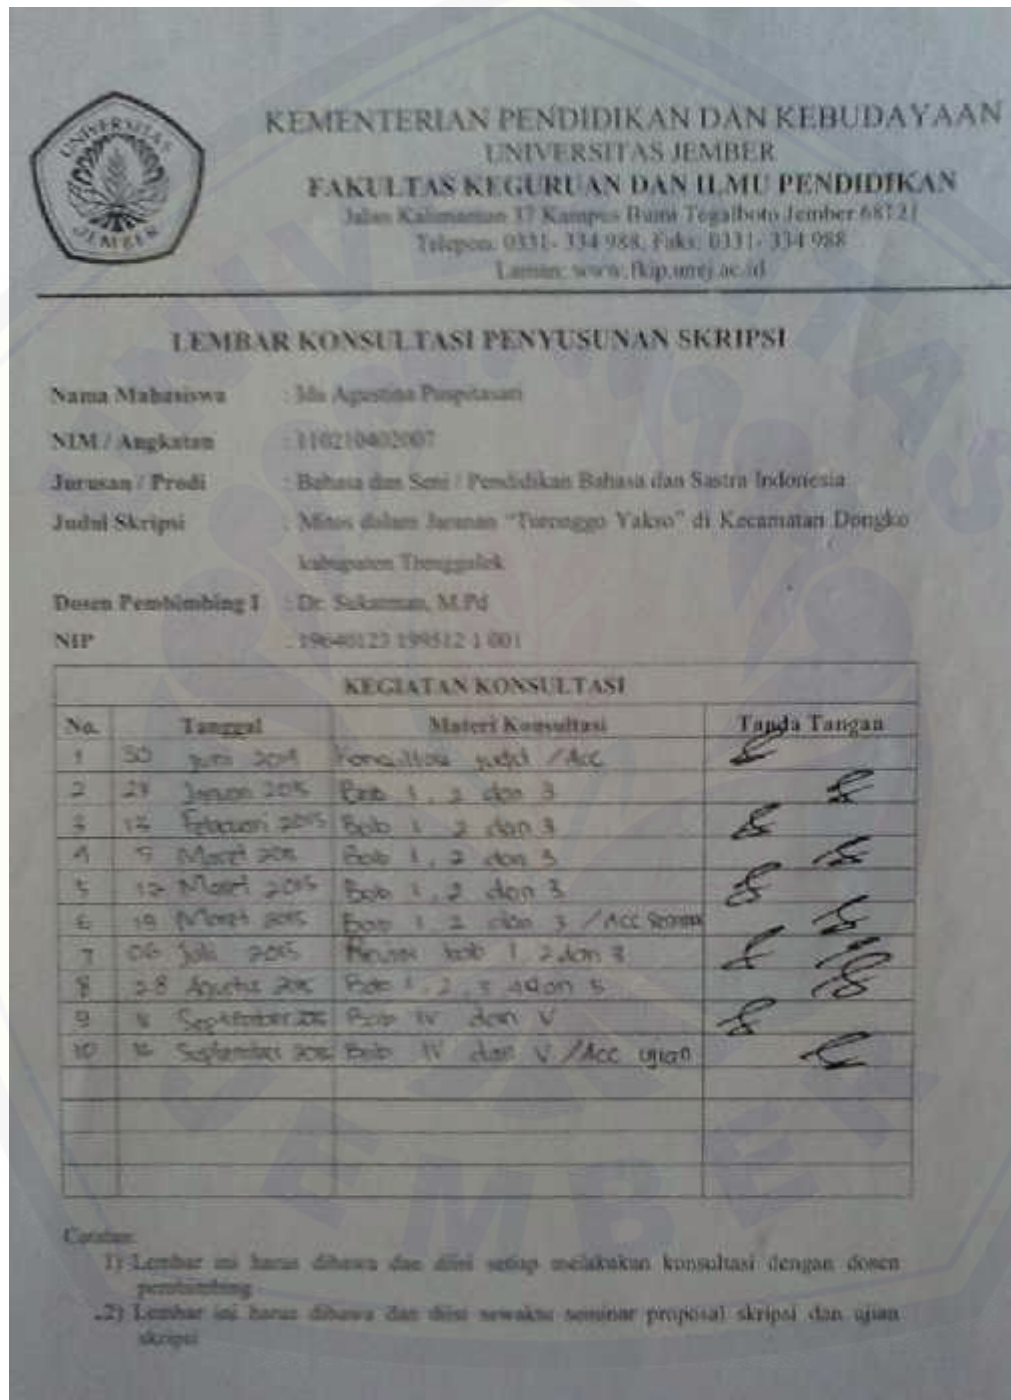 UNIVERSITAS
JEMBER
KEMENTERIAN PENDIDIKAN DAN KEBUDAYAAN
UNIVERSITAS JEMBER
FAKULTAS KEGURUAN DAN ILMU PENDIDIKAN
Jalan Kalimantan 37 Kampus Bumi Tegalboto Jember 68121
Telepon: 0331- 334 988, Faks: 0331- 334 988
Laman: www.fkip.unej.ac.id
LEMBAR KONSULTASI PENYUSUNAN SKRIPSI
Nama Mahasiswa : Ida Agustina Puspitasari
NIM / Angkatan : 110210402007
Jurusan / Prodi : Bahasa dan Seni / Pendidikan Bahasa dan Sastra Indonesia
Judul Skripsi : Mitos dalam Jaranan "Turonggo Yakso" di Kecamatan Dongko
kabupaten Trenggalek
Dosen Pembimbing I : Dr. Sukatman, M.Pd
NIP : 19640123 199512 1 001
KEGIATAN KONSULTASI
No. Tanggal Materi Konsultasi Tanda Tangan
1 30 Juni 2014 Konsultasi judul / Acc
2 28 Januari 2015 Bab 1, 2 dan 3
3 Februari 2015 Bab 1 2 dan 3
4 Maret 2015 Bab 1, 2 dan 3
5 12 Maret 2015 Bab 1, 2 dan 3
6 19 Maret 2015 Bab 1 2 dan 3 / Acc
7 06 Juli 2015 Revisi bab 1 2 dan 3
8 28 Agustus 2015 Bab 1, 2, 3, 4 dan 5
9 8 September 2015 Bab IV dan V
10 16 September 2015 Bab IV dan V / Acc ujian
Catatan:
1) Lembar ini harus dibawa dan diisi setiap melakukan konsultasi dengan dosen
pembimbing
2) Lembar ini harus dibawa dan diisi sewaktu seminar proposal skripsi dan ujian
skripsi